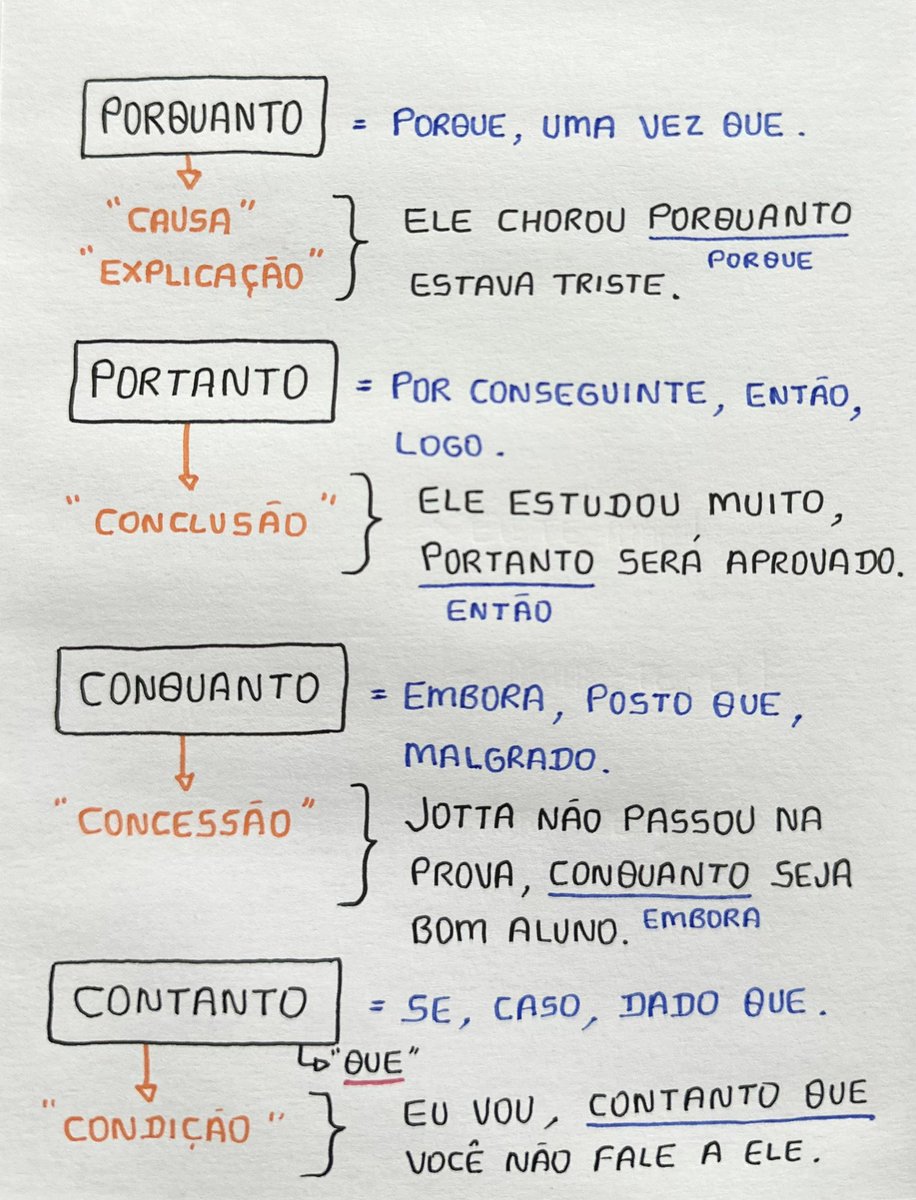 PORQUANTO = PORQUE, UMA VEZ QUE.
"CAUSA"
"EXPLICAÇÃO"
ELE CHOROU PORQUANTO
PORQUE
ESTAVA TRISTE.
PORTANTO = POR CONSEGUINTE, ENTÃO,
LOGO.
"CONCLUSÃO"
ELE ESTUDOU MUITO,
PORTANTO SERÁ APROVADO.
ENTÃO
CONQUANTO = EMBORA, POSTO QUE,
MALGRADO.
"CONCESSÃO"
JOTTA NÃO PASSOU NA
PROVA, CONQUANTO SEJA
BOM ALUNO. EMBORA
CONTANTO = SE, CASO, DADO QUE.
"QUE"
"CONDIÇÃO"
EU VOU, CONTANTO QUE
VOCÊ NÃO FALE A ELE.